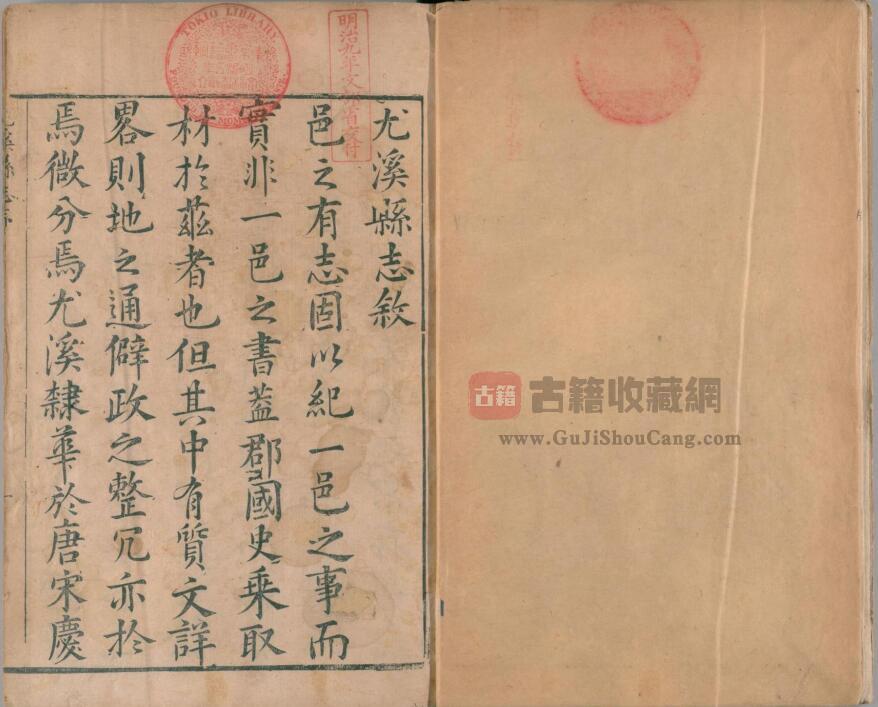 尤溪縣志敘
邑之有志固以紀一邑之事而
實非一邑之書蓋郡國史乗取
材於茲者也但其中有質文詳
畧則地之通僻政之整冗亦於
焉微分焉尤溪隸華於唐宋慶
尤溪縣志序
TOKIO LIBRARY
明治九年文部省交付
古籍
古籍收藏網
www.GuJiShouCang.com